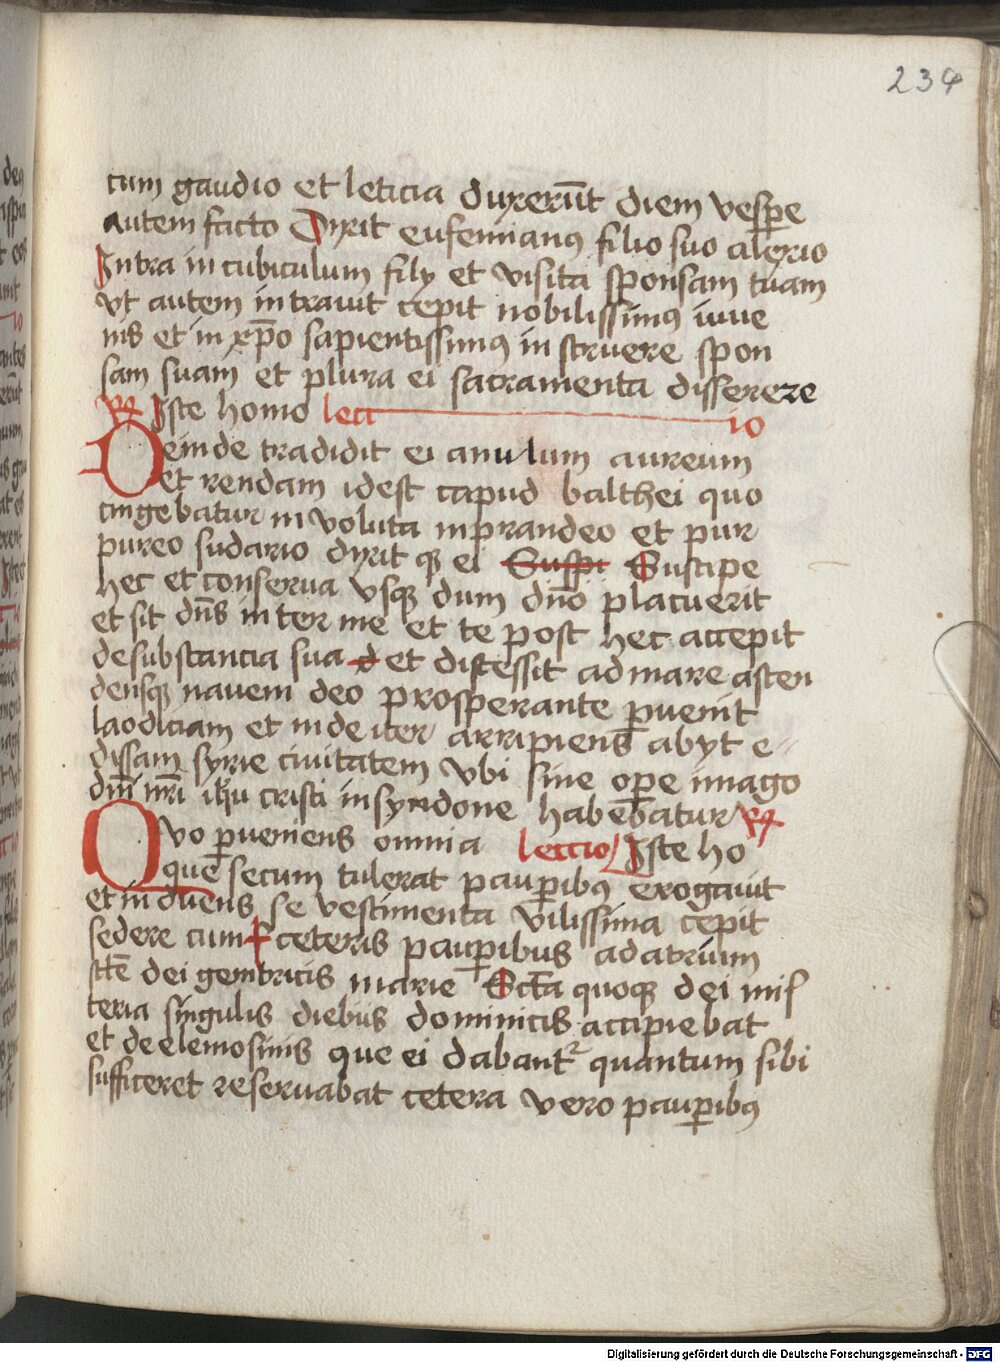 234
cum gaudio et leticia duxerūt diem vesꝑe
autem facto Dyxit eufemianꝰ filio suo alexio
Intra in cubiculum fily et visita sponsam tuam
vt autem intrauit cepit nobilissimꝰ iuue
nis et in xp̄o sapientissimꝰ instruere spon
sam suam et plura ei sacramenta disserere
℟ Iste homo lect io
Deinde tradidit ei anulum aureum
et rendam idest capud balthei quo
cingebatur inuoluta in prandeo et pur
pureo sudario dyxit qꝫ ei Suspi Suscipe
hec et conserua vsqꝫ dum dn̄o placuerit
et sit dn̄s inter me et te post hec accepit
de substancia sua d et discessit ad mare ascen
densqꝫ nauem deo prosperante ꝑuenit
laodiciam et inde iter arripiens abyt e
dissam syrie ciuitatem vbi sine ope imago
dn̄i nr̄i ihū cristi in syndone habebatur ℟
Quo ꝑueniens omnia leccio Iste ho
que secum tulerat pauꝑibꝰ erogauit
et induens se vestimenta vilissima cepit
sedere cum ceteris pauꝑibus ad atrium
sct̄e dei genitricis marie Sct̄a quoqꝫ dei mis
teria singulis diebus dominicis accipiebat
et de elemosinis que ei dabant᷑ quantum sibi
sufficeret reseruabat cetera vero pauꝑibꝰ
Digitalisierung gefördert durch die Deutsche Forschungsgemeinschaft - DFG